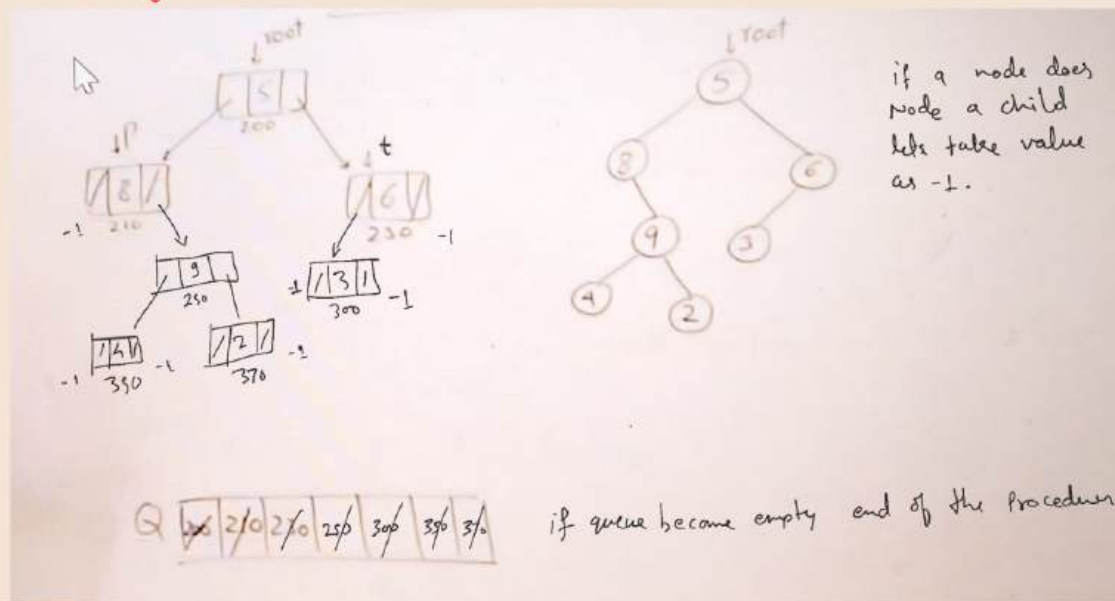 root
5
200
P
t
8
210
-1
6
230
-1
9
250
-1
3
300
-1
4
350
-1
-1
2
370
-1
root
5
8
6
9
3
4
2
if a node does
Node a child
lets take value
as -1.
Q 210 250 300 350 370
if queue become empty end of the Procedure